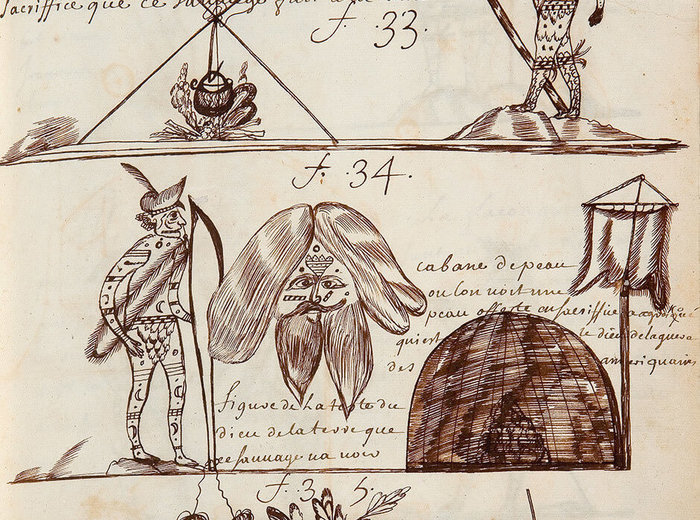 sacriffice que ce sauvage fait a
f. 33.
f. 34.
cabane de peau
ou lon voit une
peau offerte en
qui est le dieu de la guerre
des ameriquains
figure de la teste du
dieu de la terre que
ce sauvage va voir
f. 35.